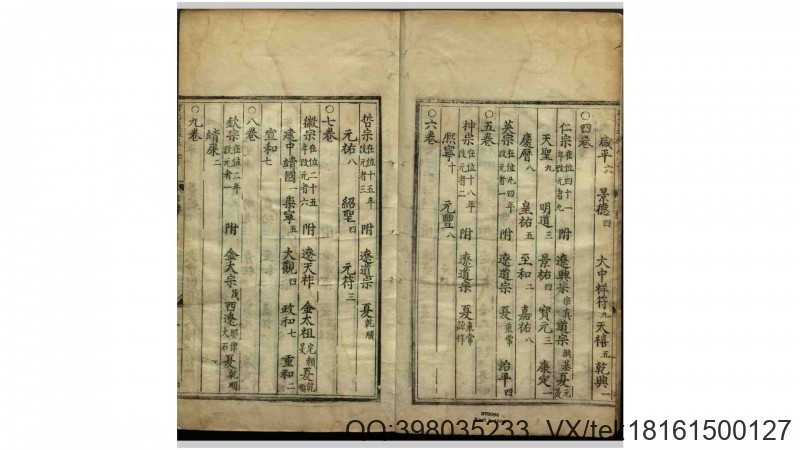 咸平六 景德四 大中祥符九 天禧五 乾興一
○四卷
仁宗在位四十一年改元者九 附 遼興宗宗真 道宗洪基 夏元昊
天聖九 明道二 景祐四 寶元二 康定一
慶曆八 皇祐五 至和二 嘉祐八
○五卷
英宗在位凡四年改元者一 附 遼道宗 夏秉常 治平四
神宗在位十八年改元者二 附 遼道宗 夏秉常
○六卷
熙寧十 元豐八
哲宗在位十五年改元者三 附 遼道宗 夏乾順
元祐八 紹聖四 元符三
○七卷
徽宗在位二十五年改元者六 附 遼天祚 金太祖 夏乾順
建中靖國一 崇寧五 大觀四 政和七 重和二
宣和七
○八卷
欽宗在位二年改元者一 附 金太宗晟 西遼耶律大石 夏乾順
靖康二
○九卷
QQ:398035233 VX/tek18161500127